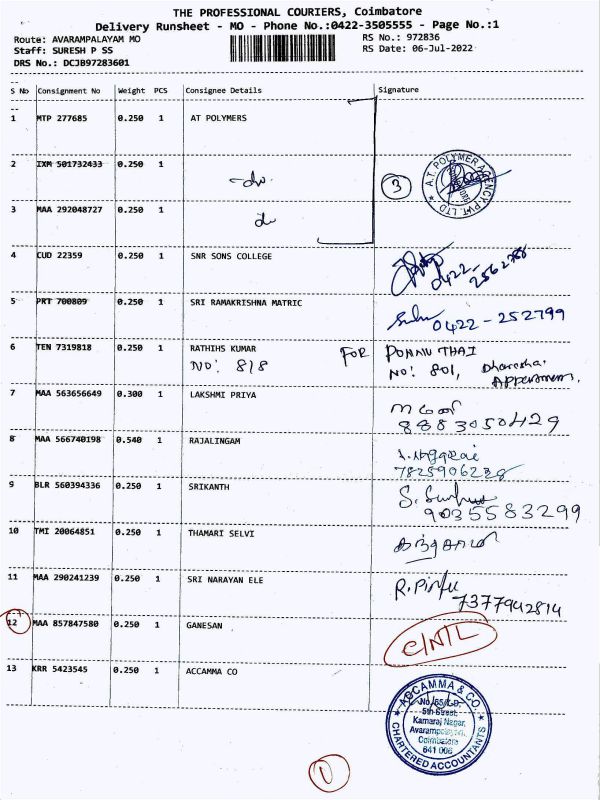 THE PROFESSIONAL COURIERS, Coimbatore
Delivery Runsheet - MO - Phone No.:0422-3505555 - Page No.:1
Route: AVARAMPALAYAM MO
RS No.: 972836
Staff: SURESH P SS
RS Date: 06-Jul-2022
DRS No.: DCJB97283601
S No Consignment No Weight PCS Consignee Details Signature
1 MTP 277685 0.250 1 AT POLYMERS
2 IXM 501732433 0.250 1 -do-
3 A.T. POLYMER AGENCY PVT. LTD
3 MAA 292048727 0.250 1 do
4 CUD 22359 0.250 1 SNR SONS COLLEGE 0422-2562788
5 PRT 700809 0.250 1 SRI RAMAKRISHNA MATRIC 0422-252799
6 TEN 7319818 0.250 1 RATHIHS KUMAR FOR PONNU THAI
NO: 818 NO: 801,
7 MAA 563656649 0.300 1 LAKSHMI PRIYA
8883050429
8 MAA 566740198 0.540 1 RAJALINGAM
7825906238
9 BLR 560394336 0.250 1 SRIKANTH
9035583299
10 TMI 20064851 0.250 1 THAMARI SELVI
11 MAA 290241239 0.250 1 SRI NARAYAN ELE
7377942814
12 MAA 857847580 0.250 1 GANESAN C/NIL
13 KRR 5423545 0.250 1 ACCAMMA CO
ACCAMMA & CO.
5th Street,
Kamaraj Nagar,
Avarampalayam,
Coimbatore
641 006
CHARTERED ACCOUNTANTS
1